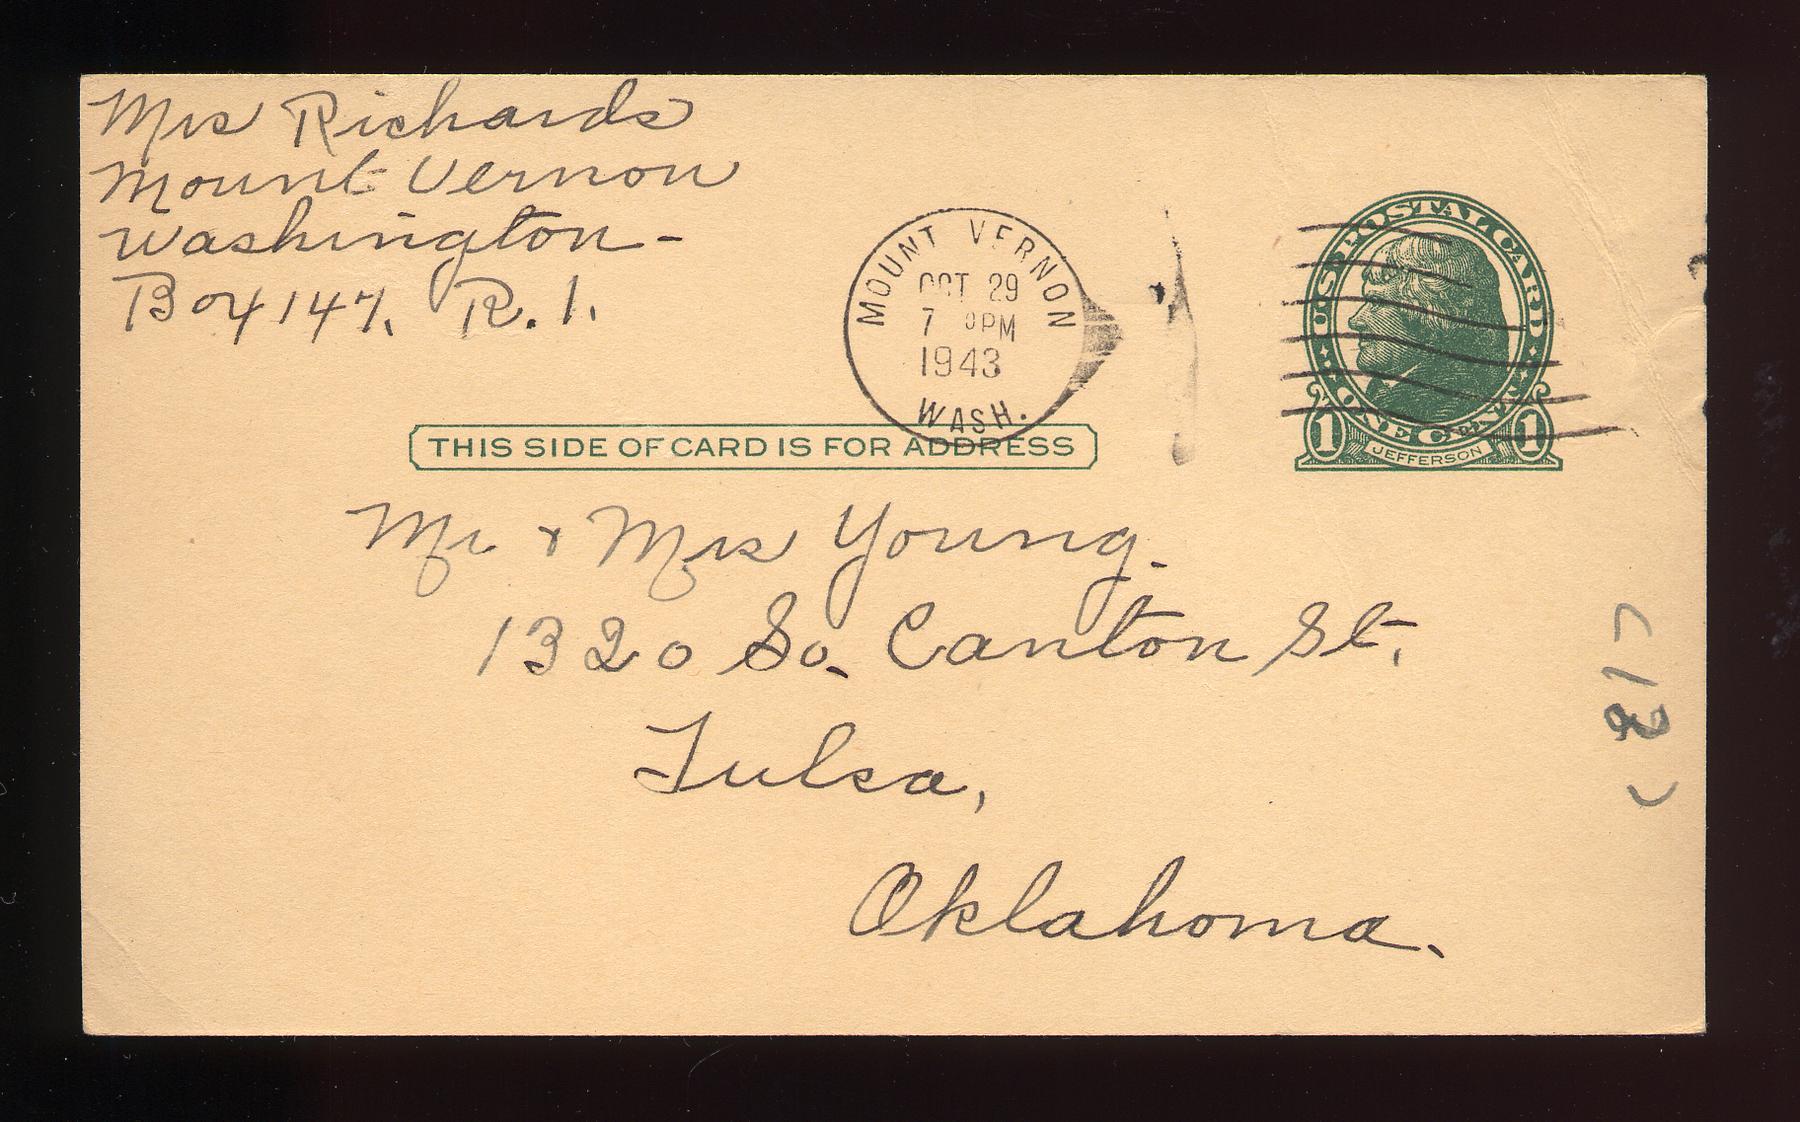 Mrs Richards
Mount Vernon
Washington -
Box 147. R. 1.
MOUNT VERNON
OCT 29
7 PM
1943
WASH.
U.S. POSTAL CARD
ONE CENT
1 JEFFERSON 1
THIS SIDE OF CARD IS FOR ADDRESS
Mr & Mrs Young.
1320 So. Canton St.
Tulsa,
Oklahoma.